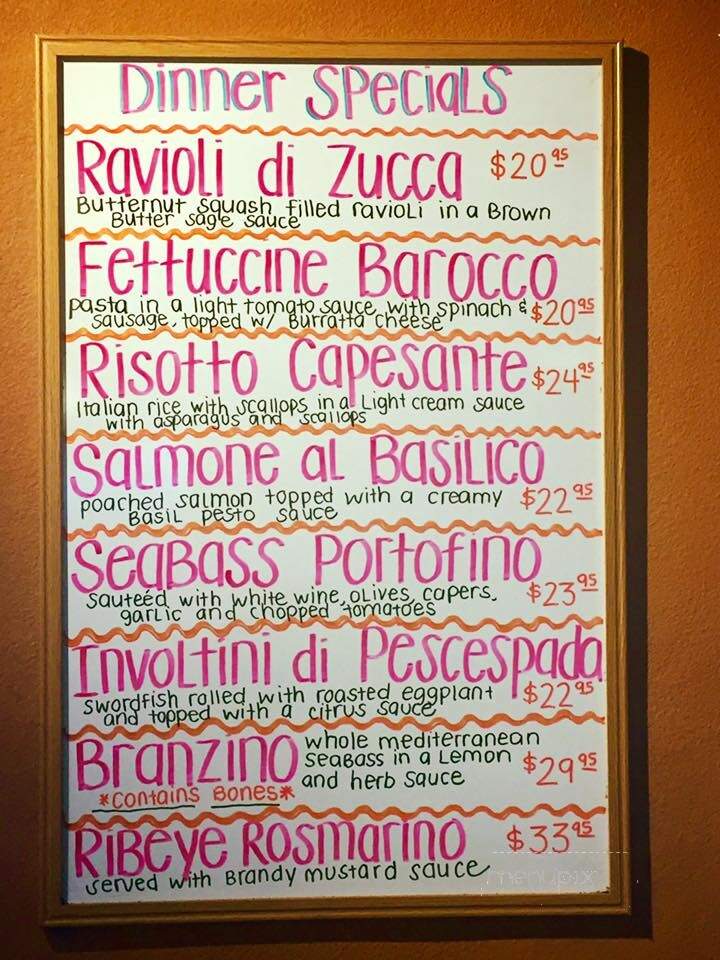 Dinner Specials
Ravioli di Zucca $20.95
Butternut squash filled ravioli in a Brown
Butter sage sauce
Fettuccine Barocco
pasta in a light tomato sauce with spinach & $20.95
sausage, topped w/ Burratta cheese
Risotto Capesante $24.95
Italian rice with scallops in a Light cream sauce
with asparagus and scallops
Salmone al Basilico
poached salmon topped with a creamy $22.95
Basil pesto sauce
Seabass Portofino
sauteéd with white wine, olives, capers, $23.95
garlic and chopped tomatoes
Involtini di Pescespada
swordfish rolled with roasted eggplant $22.95
and topped with a citrus sauce
Branzino whole mediterranean
seabass in a Lemon $29.95
and herb sauce
*contains Bones*
Ribeye Rosmarino $33.95
served with Brandy mustard sauce
menupix